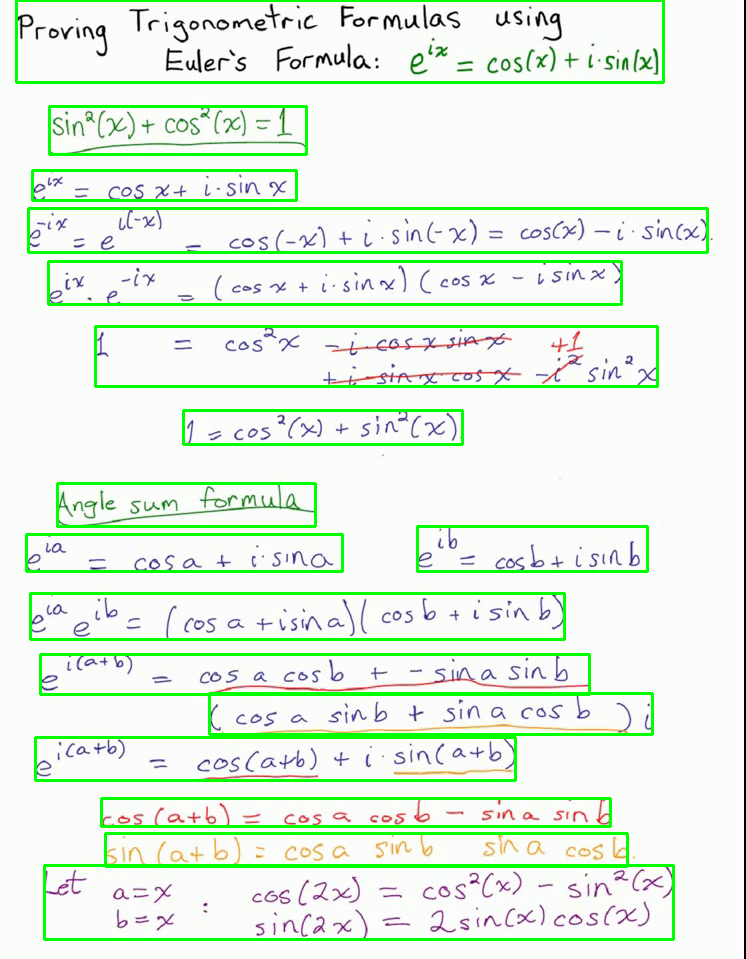 Proving Trigonometric Formulas using
Euler's Formula: e^{ix} = cos(x) + i·sin(x)
sin²(x) + cos²(x) = 1
e^{ix} = cos x + i·sin x
e^{-ix} = e^{i(-x)} = cos(-x) + i·sin(-x) = cos(x) - i·sin(x).
e^{ix}·e^{-ix} = (cos x + i·sin x)(cos x - i sin x)
1 = cos²x - i·cos x sin x +1
+ i·sin x cos x - i² sin²x
1 = cos²(x) + sin²(x).
Angle sum formula
e^{ia} = cos a + i·sin a e^{ib} = cos b + i sin b
e^{ia} e^{ib} = (cos a + i sin a)(cos b + i sin b)
e^{i(a+b)} = cos a cos b + - sin a sin b
(cos a sin b + sin a cos b) i
e^{i(a+b)} = cos(a+b) + i·sin(a+b)
cos(a+b) = cos a cos b - sin a sin b
sin(a+b) = cos a sin b sin a cos b.
Let a=x : cos(2x) = cos²(x) - sin²(x)
b=x sin(2x) = 2sin(x)cos(x)